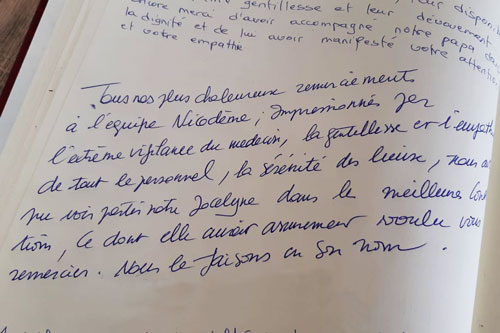 gentillesse et leur dévouement
merci d'avoir accompagné notre papa dans
la dignité et de lui avoir manifesté votre attention
et votre empathie
Tous nos plus chaleureux remerciements
à l'équipe Nicodème, Impressionnés par
l'extrême vigilance du medecin, la gentillesse et l'empath
de tout le personnel, la sérénité des lieux, nous
pu voir partir notre Jocelyne dans le meilleures Con
tions, Ce dont elle aurait voulu vous
remercier. Nous le faisons en son nom.